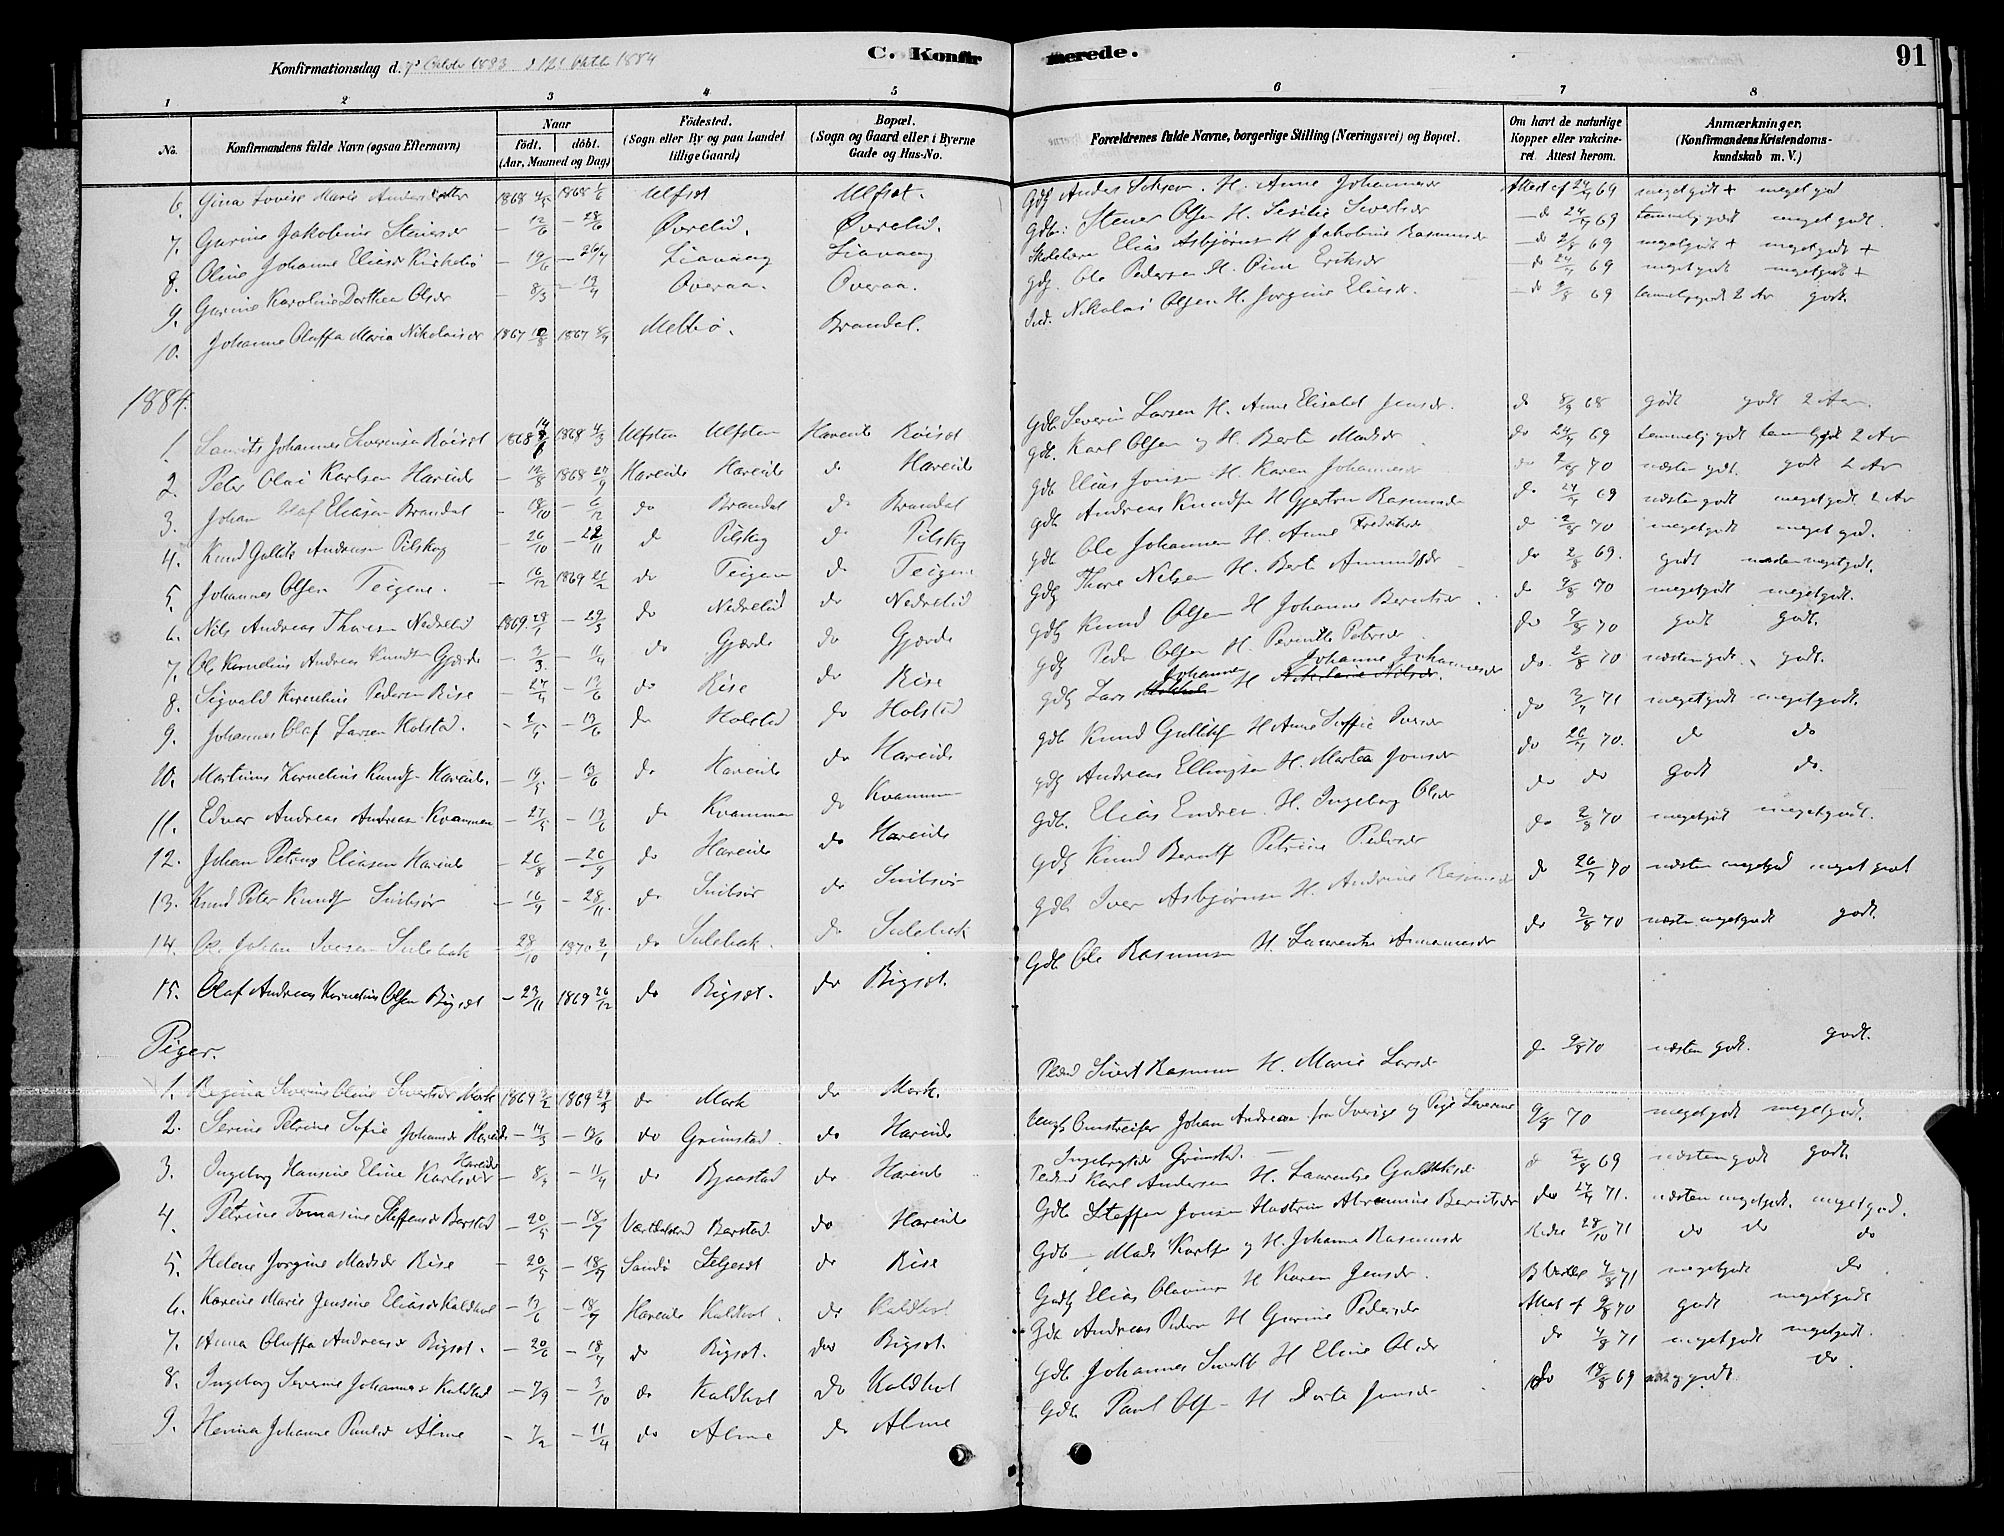 C. Konfirmerede.
91
Konfirmationsdag d. 7d October 1883 d 12 Oktb 1884
1 2 3 4 5 6 7 8
No. Konfirmandens fulde Navn (ogsaa Efternavn) Naar födt. döbt. (Aar, Maaned og Dag) Födested. (Sogn eller By og paa Landet tillige Gaard) Bopæl. (Sogn og Gaard eller i Byerne Gade og Hus-No. Forældrenes fulde Navne, borgerlige Stilling (Næringsvei) og Bopæl. Om havt de naturlige Kopper eller vakcineret. Attest herom. Anmærkninger. (Konfirmandens Kristendomskundskab m. V.)
6. Gina Lovise Marie Andersdatter 1868 1868 Ulfsæt Ulfsæt. Gdb Anders H. Anne Johannesdr Attest af 24/9 69 megetgodt + megetgodt
7. Gurine Jakobine Steinersdr - 12/6 - 28/6 Øvrelid. Øvrelid. Gdb. Stener Olsen H. Sesilie Sivertsdr - do 24/9 69 temmelig godt meget godt.
8. Oline Johanne Eliasdr Kirkebø - 19/6 - 26/7 Liavaag Liavaag Elias Asbjørnsen H Jakobine Rasmusdr - do 2/8 69 megetgodt + megetgodt +
9. Gurine Karoline Dorthea Olsdr - 8/3 - 13/4 Overaa. Overaa. gdb. Ole Pedersen H. Eriksdr - do 24/9 69 megetgodt megetgodt +
10. Johanne Oluffa Maria Nikolaisdr 1867 1867 8/9 Meltiø. Brandal. Ind. Nikolai Olsen H. Jorgine Eliasdr. - do 2/8 69 temmelig godt 2 Aar godt.
1884.
1. Laurits Johannes Røisæt 1868 1868 4/3 Ulfsten Ulfsten Hareide Røisæt Gdb Severin Larsen H. Anne Elisabet Jensdr. do 8/9 68 godt godt 2 Aar
2. Peter Olai Karlsen Hareide - 12/8 1868 27/9 Hareide Hareide do Hareide gdb. Karl Olsen og H. Berte Madsdr do 24/9 69 temmelig godt temmelig godt 2 Aar
3. Johan Olaf Eliasen Brandal - 18/10 - 6/12 do Brandal do Brandal gdb Elias Jonsen H. Karen Johannesdr do 2/8 70 næsten godt. godt 2 Aar
4. Knud Gullik Andreasen Pilskog - 26/10 - 22/11 do Pilskog do Pilskog gdb Andreas Knudsen H Gjertru Rasmusdr do 24/9 69 næsten godt megetgodt 2 Aar
5. Johannes Olsen Teigene. - 16/12 1869 21/2 do Teigen do Teigene gdb Ole Johannesen H. Anne Fredriksdr do 2/8 70 megetgodt meget godt.
6. Nils Andreas Thoresen Nedrelid 1869 28/1 - 29/3 do Nedrelid do Nedrelid gdb Thore Nilsen H. Berte Amundsdr do 2/8 69. godt næsten megetgodt.
7. Ole Kornelius Andreas Knudsen Gjærde - 2/3 - 11/4 do Gjærde do Gjærde gdb Knud Olsen H Johanne Berntsdr do 2/8 70 megetgodt megetgodt.
8. Sigvald Kornelius Pedersen Rise - 27/4 - 13/6 do Rise do Rise gdb Peder Olsen H. Pernille Petersdr do 2/8 70 godt godt.
9. Johannes Olaf Larsen Holstad. - 2/5 - 13/6 do Holstad do Holstad gdb Lars Johannesen H Johanne Johannesdr do 2/8 70 næsten godt. godt.
10. Martinus Kornelius Knuds. Hareide. - 19/5 - 13/6 do Hareide do Hareide gdb Knud Gulliks H Anne Soffie Iversdr do 3/9 71 megetgodt megetgodt.
11. Edvar Andreas Andreasen Kvammen - 27/5 - 13/6 do Kvammen do Kvammen gdb Andreas Ellingsen H. Martea Jonsdr do 26/9 70. do do
12. Johan Petrus Eliasen Hareide - 26/8 - 26/9 do Hareide do Hareide gdb. Elias Endresen H. Ingeborg Olsdr do do godt do.
13. Knud Peter Knuds Snibsør - 16/9 - 28/11. do Snibsør do Snibsør gdb Knud Bernts Petrine Pedersdr do 2/8 70 megetgodt megetgodt.
14. Ole Johan Iversen Sulebak - 28/10 1870 2/1 do Sulebak. do Sulebak gdb Iver Asbjørnsen H. Andrine Rasmusdr do 26/9 70 næsten megetgodt meget godt
15. Olaf Andreas Kornelius Olsen Bigsæt - 23/11 1869 26/12 do Bigsæt. do Bigsæt. Gdb Ole Rasmusen H. Laurentse do 2/8 70 næsten megetgodt godt.
Piger.
1. Regina Severine Oline Sivertsdr Mork 1869 2/2 1869 29/3 do Mork do Mork. Sivert Rasmusen H. Marie Larsdr do 2/8 70 næsten godt. godt.
2. Serine Petrine Sofie Johansdr Hareide - 14/3 - 13/6 do Grimstad. do Hareide Ungk Omstreifer Johan Andreasen fra Sverige og Pige Severine Ingebrigtsdr Grimstad. - 2/8 70 megetgodt megetgodt.
3. Ingeborg Hansine Eline Karlsdr Hareide - 8/3 - 11/4 do Bjaastad do Hareide Karl Andersen H. Laurentse Gulliksdr do 2/8 69 næsten godt godt.
4. Petrine Tomasine Steffensdr Barstad - 20/5 - 18/7 Vartdalstrand Barstad do Hareide Gdb Steffen Jonsen Hustru Abramine Berntsdr do 27/9 71. næsten megetgodt. megetgodt.
5. Helene Jorgine Madsdr Rise - 20/5 - 18/7 Sandø do Rise Gdb Mads Karlsen og H. Johanne Rasmusdr 28/10 71 do do do
6. Karine Marie Jensine Eliasdr Kaldhol - 13/6 - 18/7 Hareide Kaldhol. do Kaldhol Gdb Elias Olavius H Karen Jensdr. 4/8 71 megetgodt do
7. Anna Oluffa Andreasdr Bigsæt. - 20/6 - 18/7 do Bigsæt. do Bigsæt. Gdb Andreas Pedersen H Gurine Pedersdr Attest af 2/8 70 godt megetgodt
8. Ingeborg Severine Johannesdr Kaldhol - 7/9 - 3/10 do Kaldhol do Kaldhol Gdb Johannes Siverts H Eline Olsdr do 4/8 71 megetgodt megetgodt.
9. Henina Johanne Paulsdr Alme - 7/2 - 11/4 do Alme do Alme Gdb Paul Ols - H Dorte Jonsdr do 18/8 69 godt. do.